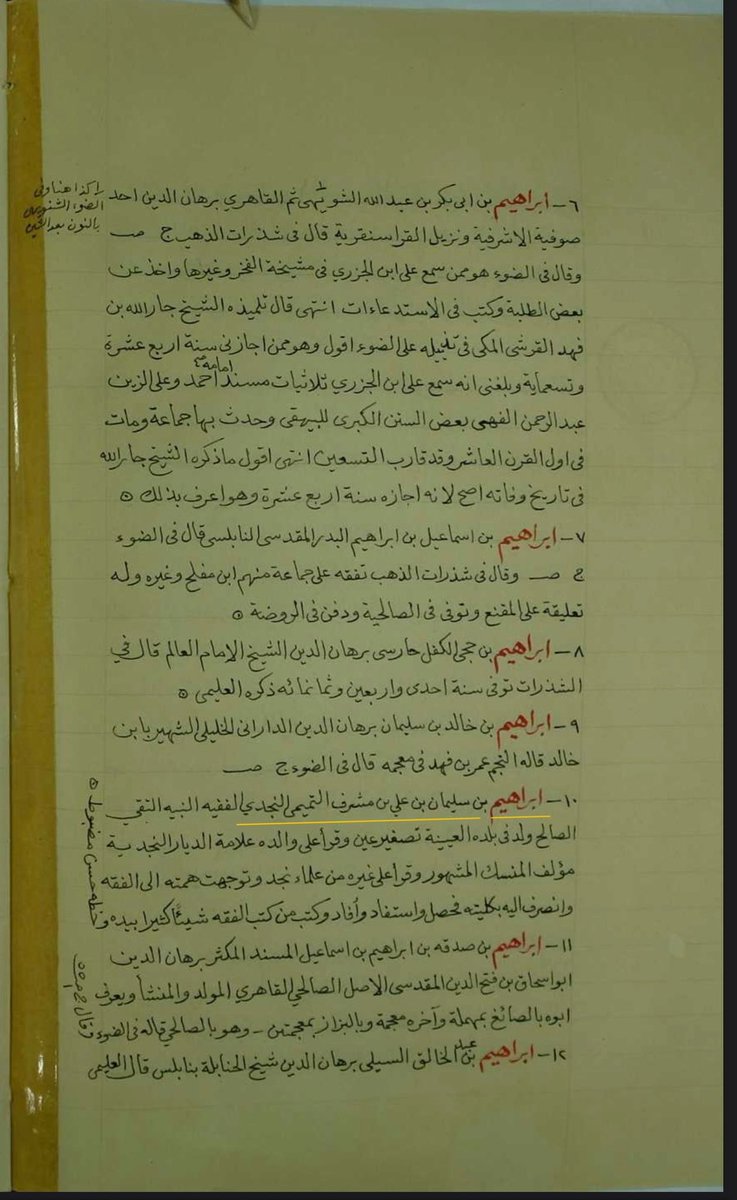 ٦ - ابراهيم بن ابى بكر بن عبد الله الشويهى ثم القاهري برهان الدين احد
صوفية الاشرفية ونزيل القراسنقرية قال فى شذرات الذهب ج صـ
وقال فى الضوء هو ممن سمع على ابن الجزري فى مشيخة الفخر وغيرها واخذ عن
بعض الطلبة وكتب فى الاستدعاءات انتهى قال تلميذه الشيخ جار الله بن
فهد القرشى المكى فى تذييله على الضوء اقول وهو ممن اجازنى سنة اربع عشرة
وتسعماية وبلغنى انه سمع على ابن الجزري ثلاثيات مسند امامه احمد وعلى الزين
عبد الرحمن بعض السنن الكبرى للبيهقى وحدث بها جماعة ومات
فى اول القرن العاشر وقد قارب التسعين انتهى اقول ما ذكره الشيخ جار الله
فى تاريخ وفاته اصح لانه اجازه سنة اربع عشرة وهو اعرف بذلك ۞
٧ - ابراهيم بن اسماعيل بن ابراهيم البدر المقدسى النابلسى قال فى الضوء
ج صـ وقال فى شذرات الذهب تفقه على جماعة منهم ابن مفلح وغيره وله
تعليقة على المقنع وتوفى فى الصالحية ودفن فى الروضة ۞
٨ - ابراهيم بن حجى الكفل حارسى برهان الدين الشيخ الامام العالم قال في
الشذرات توفى سنة احدى واربعين وثمانمائه ذكره العليمى ۞
٩ - ابراهيم بن خالد بن سليمان برهان الدين الدارانى الخليلى الشهير با بن
خالد قاله النجم عمر بن فهد فى معجمه قال فى الضوء ج صـ
١٠ - ابراهيم بن سليمان بن علي بن مشرف التميمى النجدي الفقيه النبيه التقي
الصالح ولد فى بلده العيينة تصغير عين وقرأ على والده علامة الديار النجدية
مؤلف المنسك المشهور وقرا على غيره من علماء نجد وتوجهت همته الى الفقه
وانصرف اليه بكليته فحصل واستفاد وأفاد وكتب من كتب الفقه شيئًا كثيرا بيده و
خطه حسن مضبوط ۞
١١ - ابراهيم بن صدقه بن ابراهيم بن اسماعيل المسند المكثر برهان الدين
ابو اسحاق بن فتح الدين المقدسى الاصل الصالحي القاهري المولد والمنشأ ويعرف
ابوه بالصائغ بمهملة وآخره معجمة وبالبزاز بمعجمتين - وهو بالصالحي قاله فى الضوء
١٢ - ابراهيم بن عبد الخالق السيلى برهان الدين شيخ الحنابلة بنابلس قال العليمى
١ كذا هنا وفى
الضوء
بالنون بعد الشين